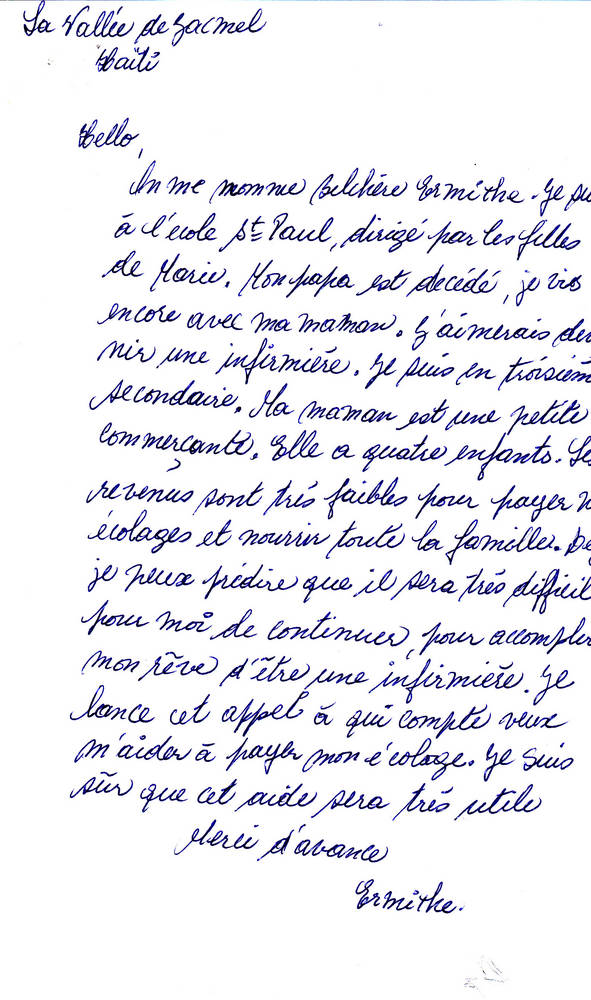 La Vallée de Jacmel
Haïti
Hello,
On me nomme Belchère Ermithe. Je su
à l'école St Paul, dirigé par les filles
de Marie. Mon papa est decédé, je vis
encore avec ma maman. J'aimerais dev
nir une infirmière. Je suis en troisièm
secondaire. Ma maman est une petite
commerçante. Elle a quatre enfants. Les
revenus sont très faibles pour payer n
écolages et nourrir toute la famille. De
je peux prédire que il sera très difficil
pour moi de continuer, pour accomplir
mon rêve d'être une infirmière. Je
lance cet appel à qui compte veux
m'aider à payer mon écolage. Je suis
sûr que cet aide sera très utile
Merci d'avance
Ermithe.